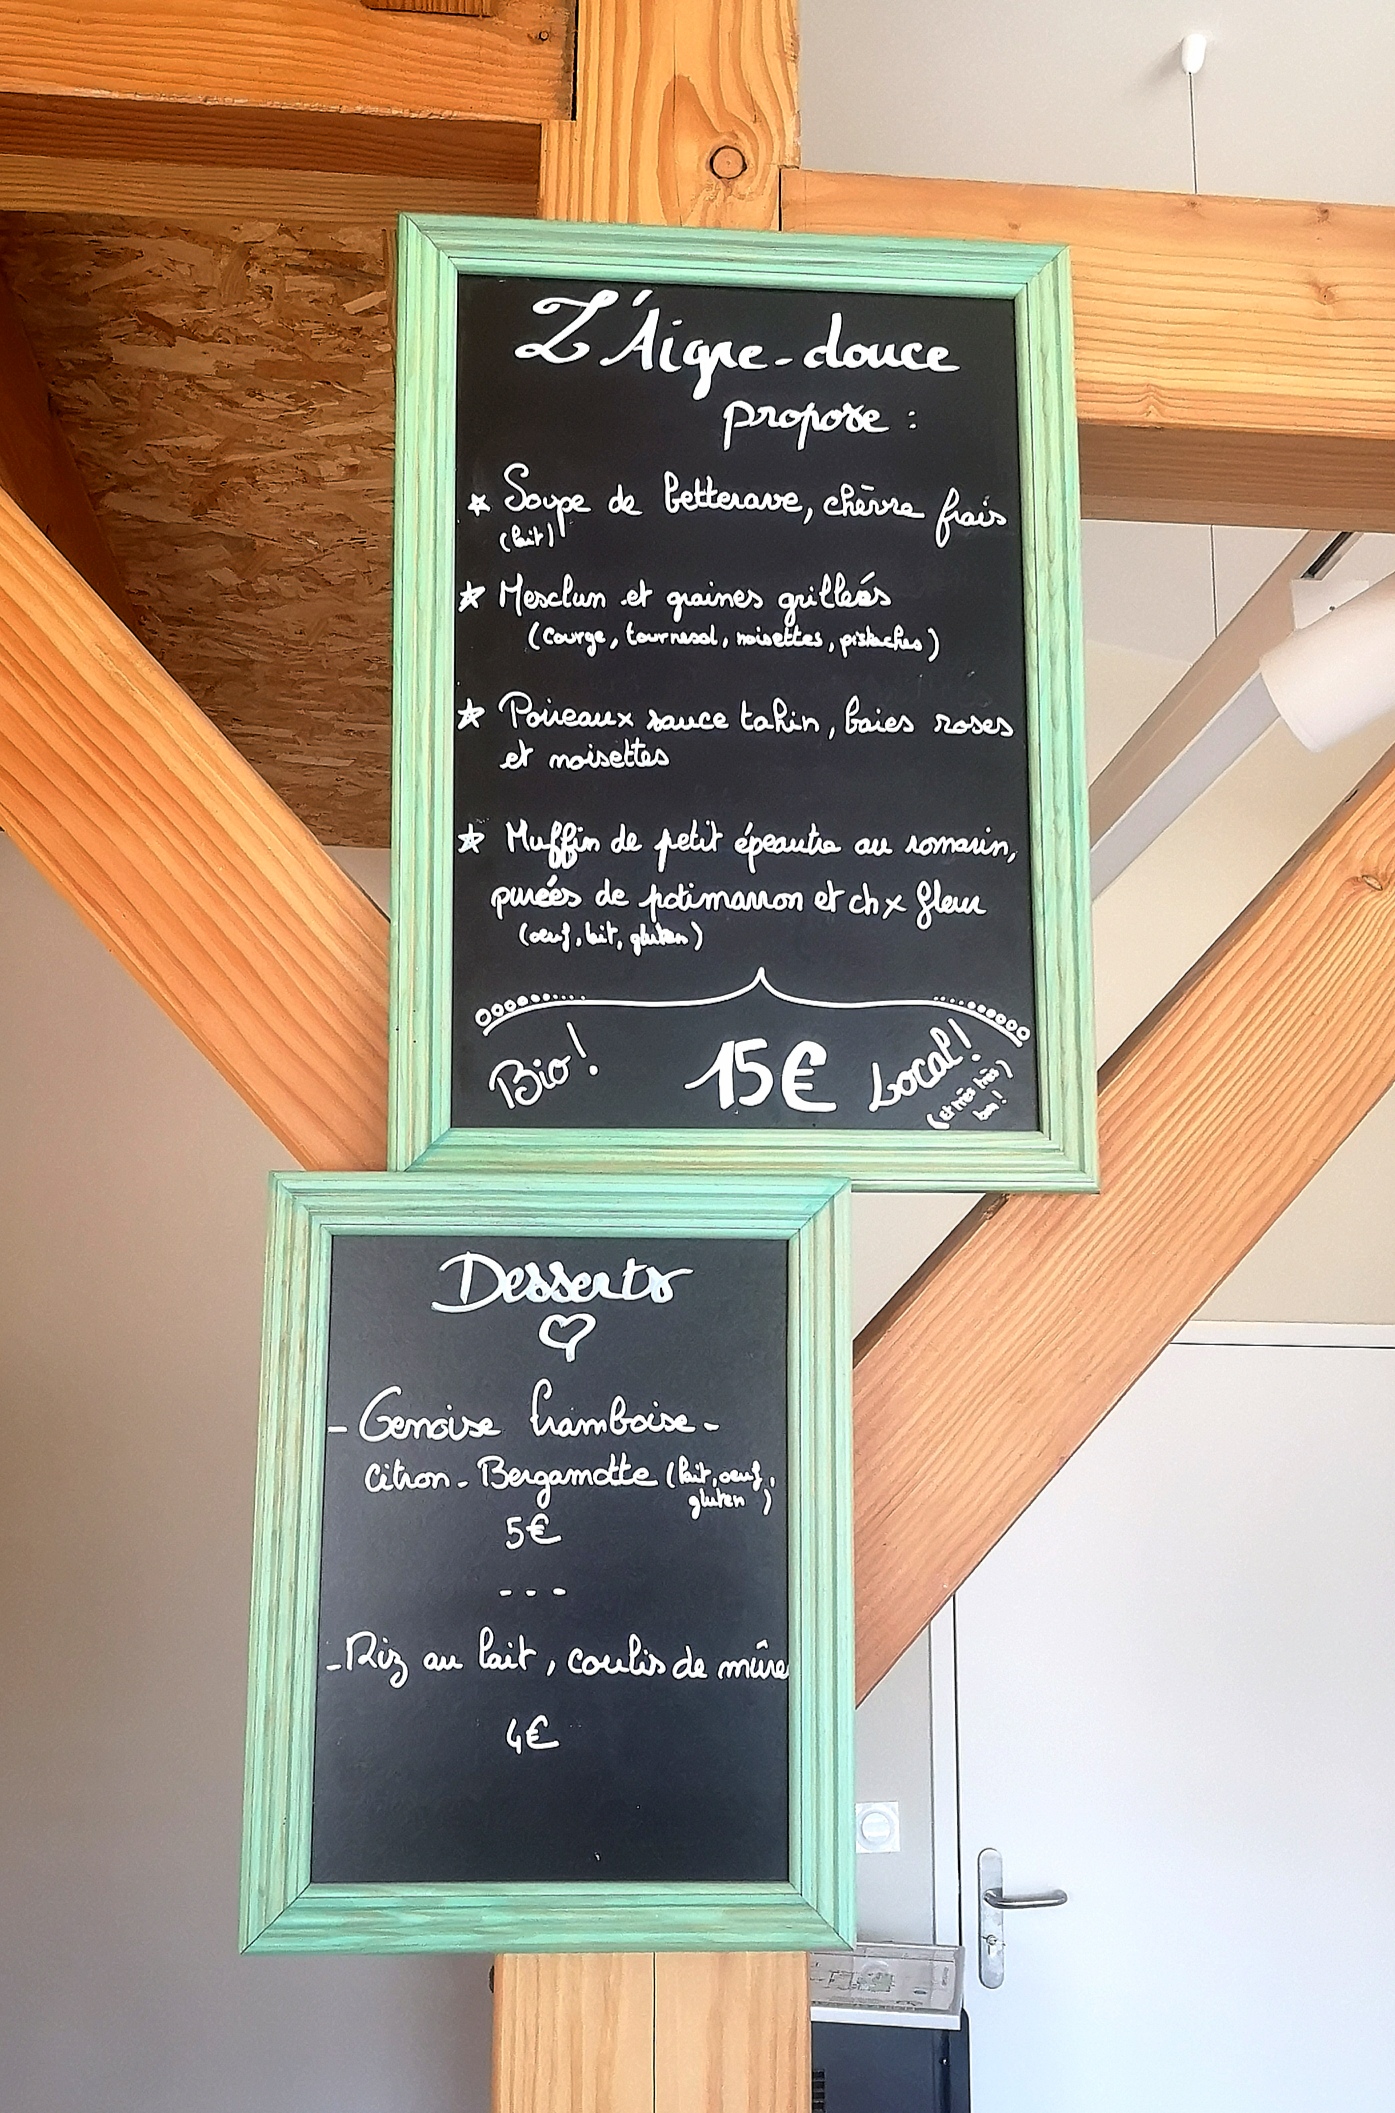 L'Aigre-douce
propose :
Soupe de betterave, chèvre frais
(lait)
Mesclun et graines grilleés
(courge, tournesol, noisettes, pistaches)
Poireaux sauce tahin, baies roses
et noisettes
Muffin de petit épeautre au romarin,
purées de potimarron et chx fleur
(oeuf, lait, gluten)
Bio! 15€ Local!
(et très très)
bon!
Desserts
- Genoise framboise -
Citron - Bergamotte (lait, oeuf,
gluten)
5€
---
- Riz au lait, coulis de mûre
4€